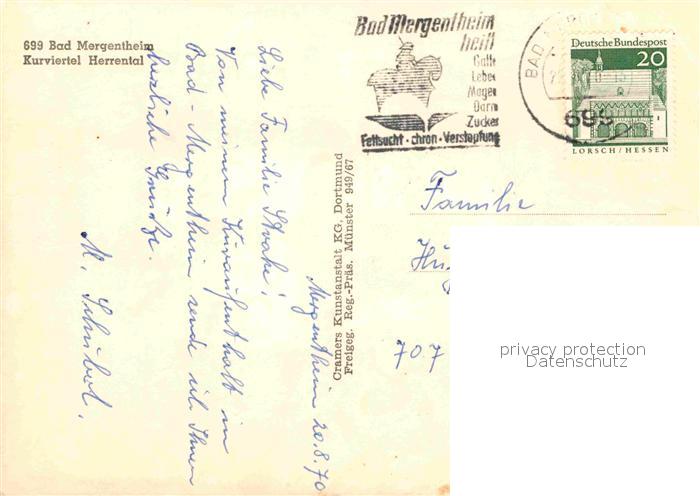 699 Bad Mergentheim
Kurviertel Herrental
Mergentheim 20.8.70
Liebe Familie
Von meinem Kuraufenthalt in
Bad-Mergentheim sende ich Ihnen
herzliche Grüße.
M. Schubal.
Cramers Kunstanstalt KG, Dortmund
Freigeg. Reg.-Präs. Münster 949/67
Bad Mergentheim
heilt
Galle
Leber
Magen
Darm
Zucker
Fettsucht · chron · Verstopfung
BAD
699
Deutsche Bundespost
20
LORSCH/HESSEN
Familie
707
privacy protection
Oldthing.de